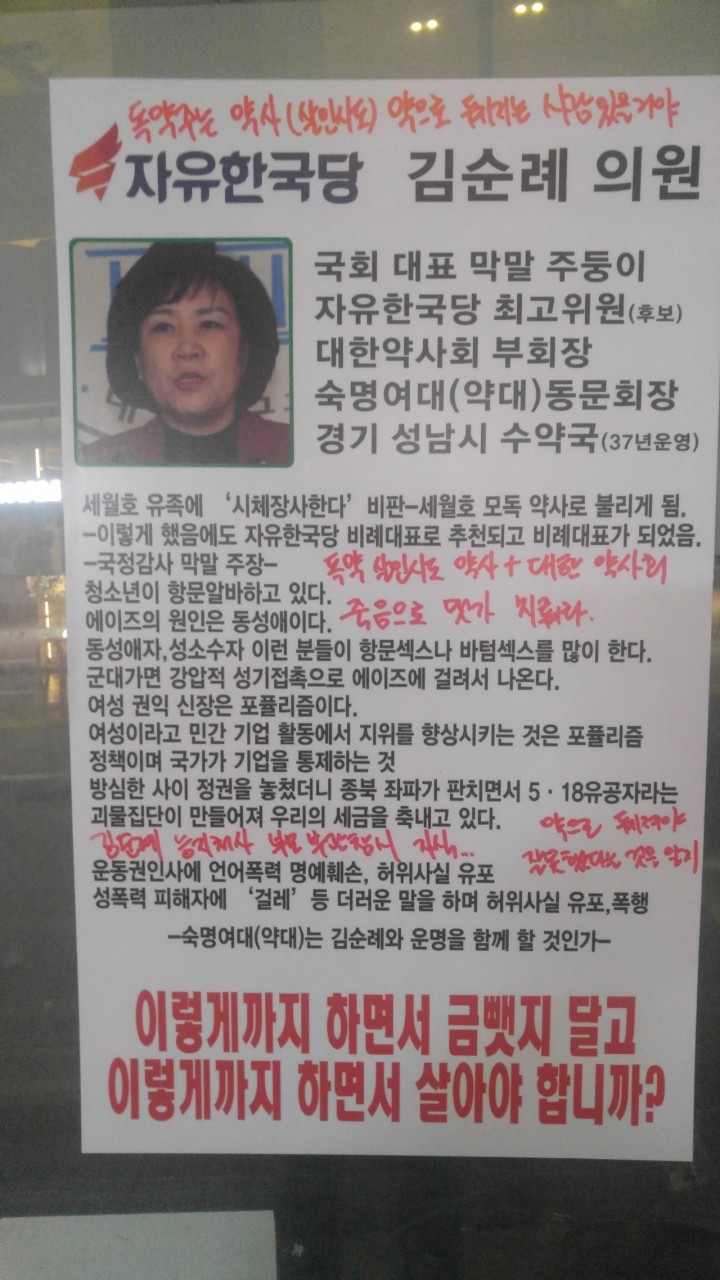 독약주는 약사(살인시도) 약으로 뒈지는 사람있을거야
자유한국당 김순례 의원
국회 대표 막말 주둥이
자유한국당 최고위원(후보)
대한약사회 부회장
숙명여대(약대)동문회장
경기 성남시 수약국(37년운영)
세월호 유족에 ‘시체장사한다’ 비판-세월호 모독 약사로 불리게 됨.
-이렇게 했음에도 자유한국당 비례대표로 추천되고 비례대표가 되었음.
-국정감사 막말 주장-
독약 살인시도 약사+대한 약사회
청소년이 항문알바하고 있다.
에이즈의 원인은 동성애이다.
죽음으로 댓가 치뤄라.
동성애자,성소수자 이런 분들이 항문섹스나 바텀섹스를 많이 한다.
군대가면 강압적 성기접촉으로 에이즈에 걸려서 나온다.
여성 권익 신장은 포퓰리즘이다.
여성이라고 민간 기업 활동에서 지위를 향상시키는 것은 포퓰리즘
정책이며 국가가 기업을 통제하는 것
방심한 사이 정권을 놓쳤더니 종북 좌파가 판치면서 5·18유공자라는
괴물집단이 만들어져 우리의 세금을 축내고 있다.
약으로 뒈져야
김순례 능지처사 부모
잘못했다는 것을 알지
운동권인사에 언어폭력 명예훼손, 허위사실 유포
성폭력 피해자에 ‘걸레’등 더러운 말을 하며 허위사실 유포,폭행
-숙명여대(약대)는 김순례와 운명을 함께 할 것인가-
이렇게까지 하면서 금뺏지 달고
이렇게까지 하면서 살아야 합니까?